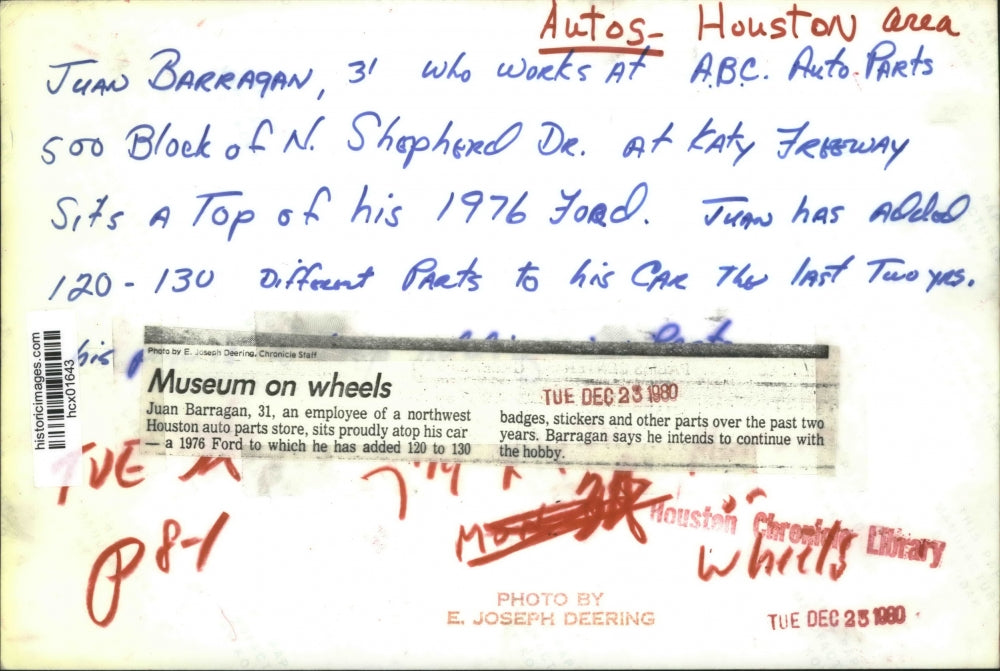 Autos- Houston area
Juan Barragan, 31 who works at A.B.C. Auto Parts
500 Block of N. Shepherd Dr. at Katy Freeway
Sits a Top of his 1976 Ford. Juan has added
120-130 Different Parts to his Car The last Two yrs.
his
historicimages.com
hcx01643
Photo by E. Joseph Deering, Chronicle Staff
Museum on wheels
Juan Barragan, 31, an employee of a northwest
Houston auto parts store, sits proudly atop his car
— a 1976 Ford to which he has added 120 to 130
TUE DEC 23 1980
badges, stickers and other parts over the past two
years. Barragan says he intends to continue with
the hobby.
TUE
P 8-1
Mon
Houston Chronicle Library
Wheels
PHOTO BY
E. JOSEPH DEERING
TUE DEC 23 1980